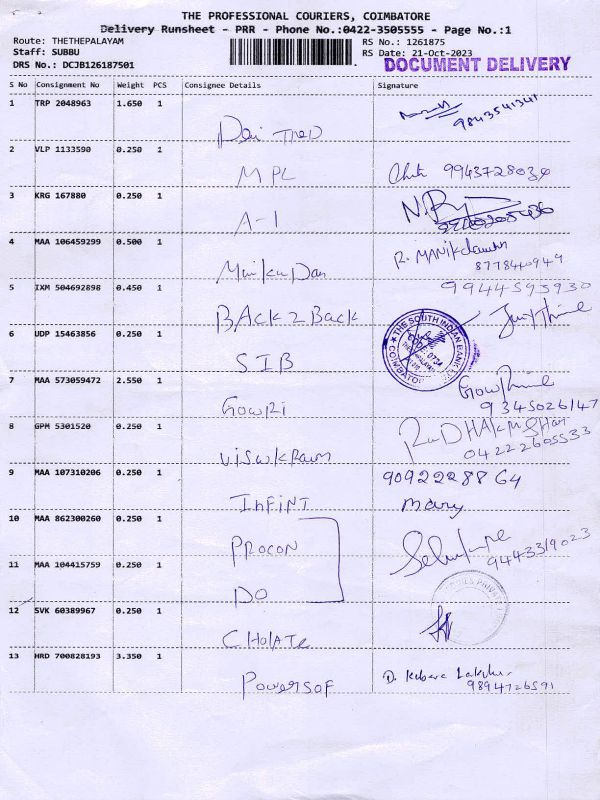 THE PROFESSIONAL COURIERS, COIMBATORE
Delivery Runsheet - PRR - Phone No.:0422-3505555 - Page No.:1
Route: THETHEPALAYAM RS No.: 1261875
Staff: SUBBU RS Date: 21-Oct-2023
DRS No.: DCJB126187501 DOCUMENT DELIVERY
S No Consignment No Weight PCS Consignee Details Signature
1 TRP 2048963 1.650 1
9843541341
2 VLP 1133590 0.250 1
MPL 9943728030
3 KRG 167880 0.250 1
A-1
4 MAA 106459299 0.500 1
R. MANIKdaman
8778440949
5 IXM 504692898 0.450 1 9944593930
BACk 2 BACk
6 UDP 15463856 0.250 1 THE SOUTH INDIAN BANK
COIMBATORE
SIB
7 MAA 573059472 2.550 1
GOWRI 9345026147
8 GPM 5301520 0.250 1
04222605533
9 MAA 107310206 0.250 1 9092228864
INFINT Mary
10 MAA 862300260 0.250 1
PROCON 9443319023
11 MAA 104415759 0.250 1
DO
12 SVK 60389967 0.250 1
CHOLATE
13 HRD 700828193 3.350 1
POWERSOF 9894726591